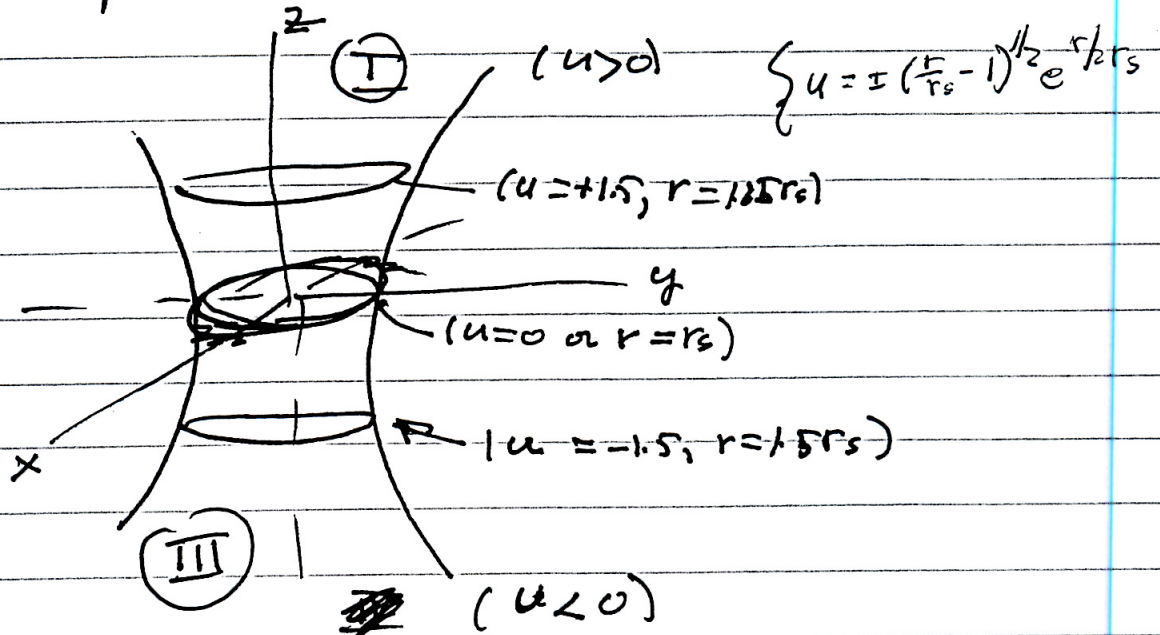 z
I
(u>0)
{ u = ± (r/rs - 1)^1/2 e^r/2rs
(u=+1.5, r=1.5rs)
y
(u=0 or r=rs)
(u = -1.5, r=1.5rs)
x
III
(u<0)